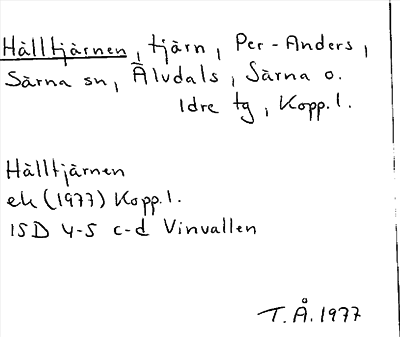 Hålltjärnen, tjärn, Per-Anders,
Särna sn, Älvdals, Särna o.
Idre tg, Kopp.l.
Hålltjärnen
ek (1977) Kopp.l.
15D 4-5 c-d Vinvallen
T.Å. 1977